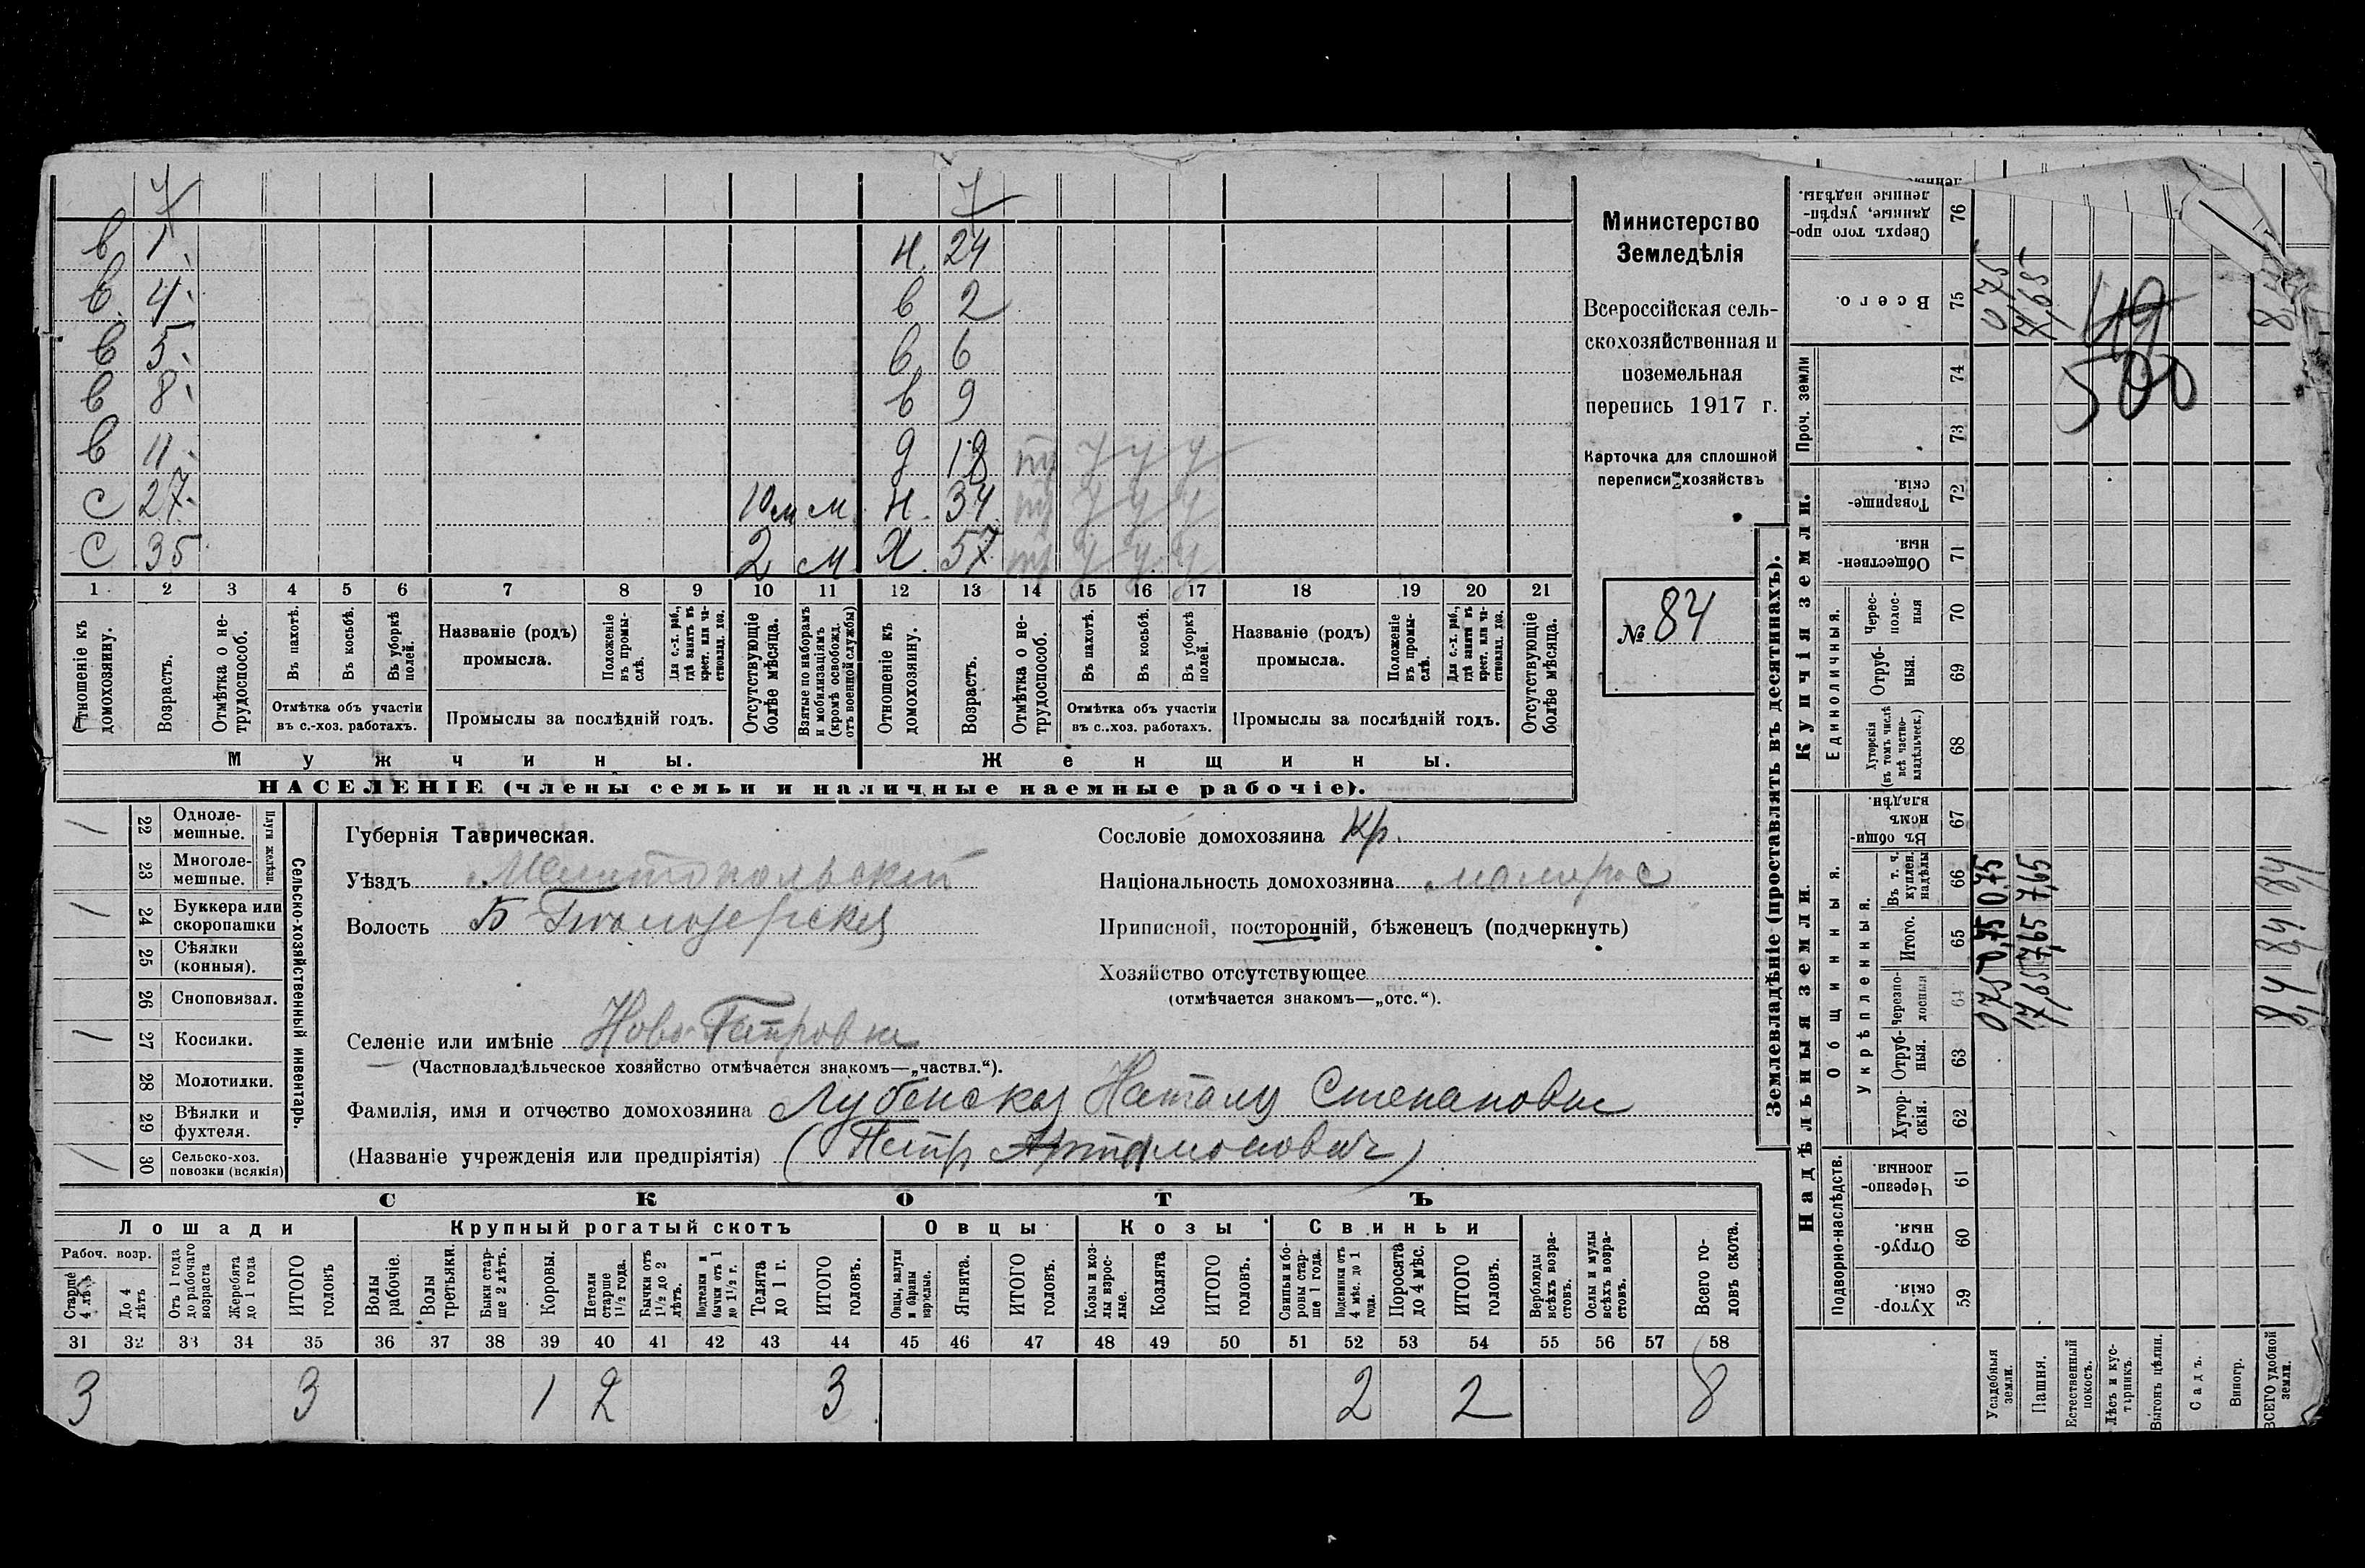 7 7
в 1 н 24
в 4 в 2
в 5 в 6
в 8 в 9
в 11 д 18
с 27 10 м м н 34
с 35 2 м х 57
1 2 3 4 5 6 7 8 9 10 11 12 13 14 15 16 17 18 19 20 21
Отношеніе къ домохозяину.
Возрастъ.
Отмѣтка о не-трудоспособ.
Въ пахотѣ.
Въ косьбѣ.
Въ уборкѣ полей.
Отмѣтка объ участіи
въ с.-хоз. работахъ.
Названіе (родъ)
промысла.
Положеніе въ промы-слѣ.
Для с.-х. раб., гдѣ занятъ въ крест. или ча-стновлад. хоз.
Промыслы за послѣдній годъ.
Отсутствующіе болѣе мѣсяца.
Взятые по наборамъ и мобилизаціямъ (кромѣ освобожд. отъ военной службы)
Отношеніе къ домохозяину.
Возрастъ.
Отмѣтка о не-трудоспособ.
Въ пахотѣ.
Въ косьбѣ.
Въ уборкѣ полей.
Отмѣтка объ участіи
въ с.-хоз. работахъ.
Названіе (родъ)
промысла.
Положеніе въ промы-слѣ.
Для с.-х. раб., гдѣ занята въ крест. или ча-стновлад. хоз.
Промыслы за послѣдній годъ.
Отсутствующіе болѣе мѣсяца.
Мужчины. Женщины.
НАСЕЛЕНІЕ (члены семьи и наличные наемные рабочіе).
Министерство
Земледѣлія
Всероссійская сель-
скохозяйственная и
поземельная
перепись 1917 г.
Карточка для сплошной
переписи хозяйствъ
№ 84
22 Одноле-мешные.
23 Многоле-мешные.
Плуги желѣзн.
24 Буккера или скоропашки
25 Сѣялки (конныя).
26 Сноповязал.
27 Косилки.
28 Молотилки.
29 Вѣялки и фухтеля.
30 Сельско-хоз. повозки (всякія)
Сельско-хозяйственный инвентарь.
Губернія Таврическая.
Уѣздъ Мелитопольскій
Волость Б Бѣлозерская
Селеніе или имѣніе Ново Петровка
(Частновладѣльческое хозяйство отмѣчается знакомъ—„частвл.“).
Фамилія, имя и отчество домохозяина Лубенская Наталя Степановна
(Названіе учрежденія или предпріятія) (Петр Артамонович)
Сословіе домохозяина Кр.
Національность домохозяина малорос
Приписной, посторонній, бѣженецъ (подчеркнуть)
Хозяйство отсутствующее
(отмѣчается знакомъ—„отс.“).
СКОТЪ
Лошади Крупный рогатый скотъ Овцы Козы Свиньи
Рабоч. возр.
Старше 4 лѣтъ
До 4 лѣтъ
Отъ 1 года до рабочаго возраста
Жеребята до 1 года
ИТОГО головъ
Волы рабочіе.
Волы третьяки.
Быки стар-ше 2 лѣтъ.
Коровы.
Нетели старше 1½ года.
Бычки отъ 1½ до 2 лѣтъ.
Подтелки и бычки отъ 1 до 1½ г.
Телята до 1 г.
ИТОГО головъ.
Овцы, валухи и бараны взрослые.
Ягнята.
ИТОГО головъ.
Козы и коз-лы взрос-лые.
Козлята
ИТОГО головъ.
Свиньи и бо-ровы стар-ше 1 года.
Подсвинки отъ 4 мѣс. до 1 года.
Поросята до 4 мѣс.
ИТОГО головъ.
Верблюды всѣхъ возра-стовъ.
Ослы и мулы всѣхъ возра-стовъ.
Всего го-ловъ скота.
31 32 33 34 35 36 37 38 39 40 41 42 43 44 45 46 47 48 49 50 51 52 53 54 55 56 57 58
3 3 1 2 3 2 2 8
Землевладѣніе (проставлять въ десятинахъ).
Купчія земли.
Единоличныя.
Проч. земли
Сверхъ того про-данные, укрѣп-ленные надѣлы. 76
Всего. 75
74
73
Товарище-скія. 72
Обществен-ныя. 71
Черес-полос-ныя 70
Отруб-ныя. 69
Хуторскія (въ томъ числѣ всѣ частно-владѣльческ.) 68
Надѣльныя земли.
Общинныя.
Укрѣпленныя.
Въ общи-номъ владѣн. 67
Въ т. ч. куплен. надѣлы 66
Итого. 65
Черезпо-лосныя 64
Отруб-ныя. 63
Хутор-скія. 62
Подворно-наслѣдств.
Черезпо-лосныя 61
Отруб-ныя. 60
Хутор-скія. 59
Усадебныя земли.
Пашня.
Естественный покосъ.
Лѣсъ и кус-тарникъ.
Выгонъ цѣлин.
Садъ.
Виногр.
ВСЕГО удобной земли.
075 0,75 0,75 075
7,65 7,65 7,65 7,65
8,4 84 84
49
500